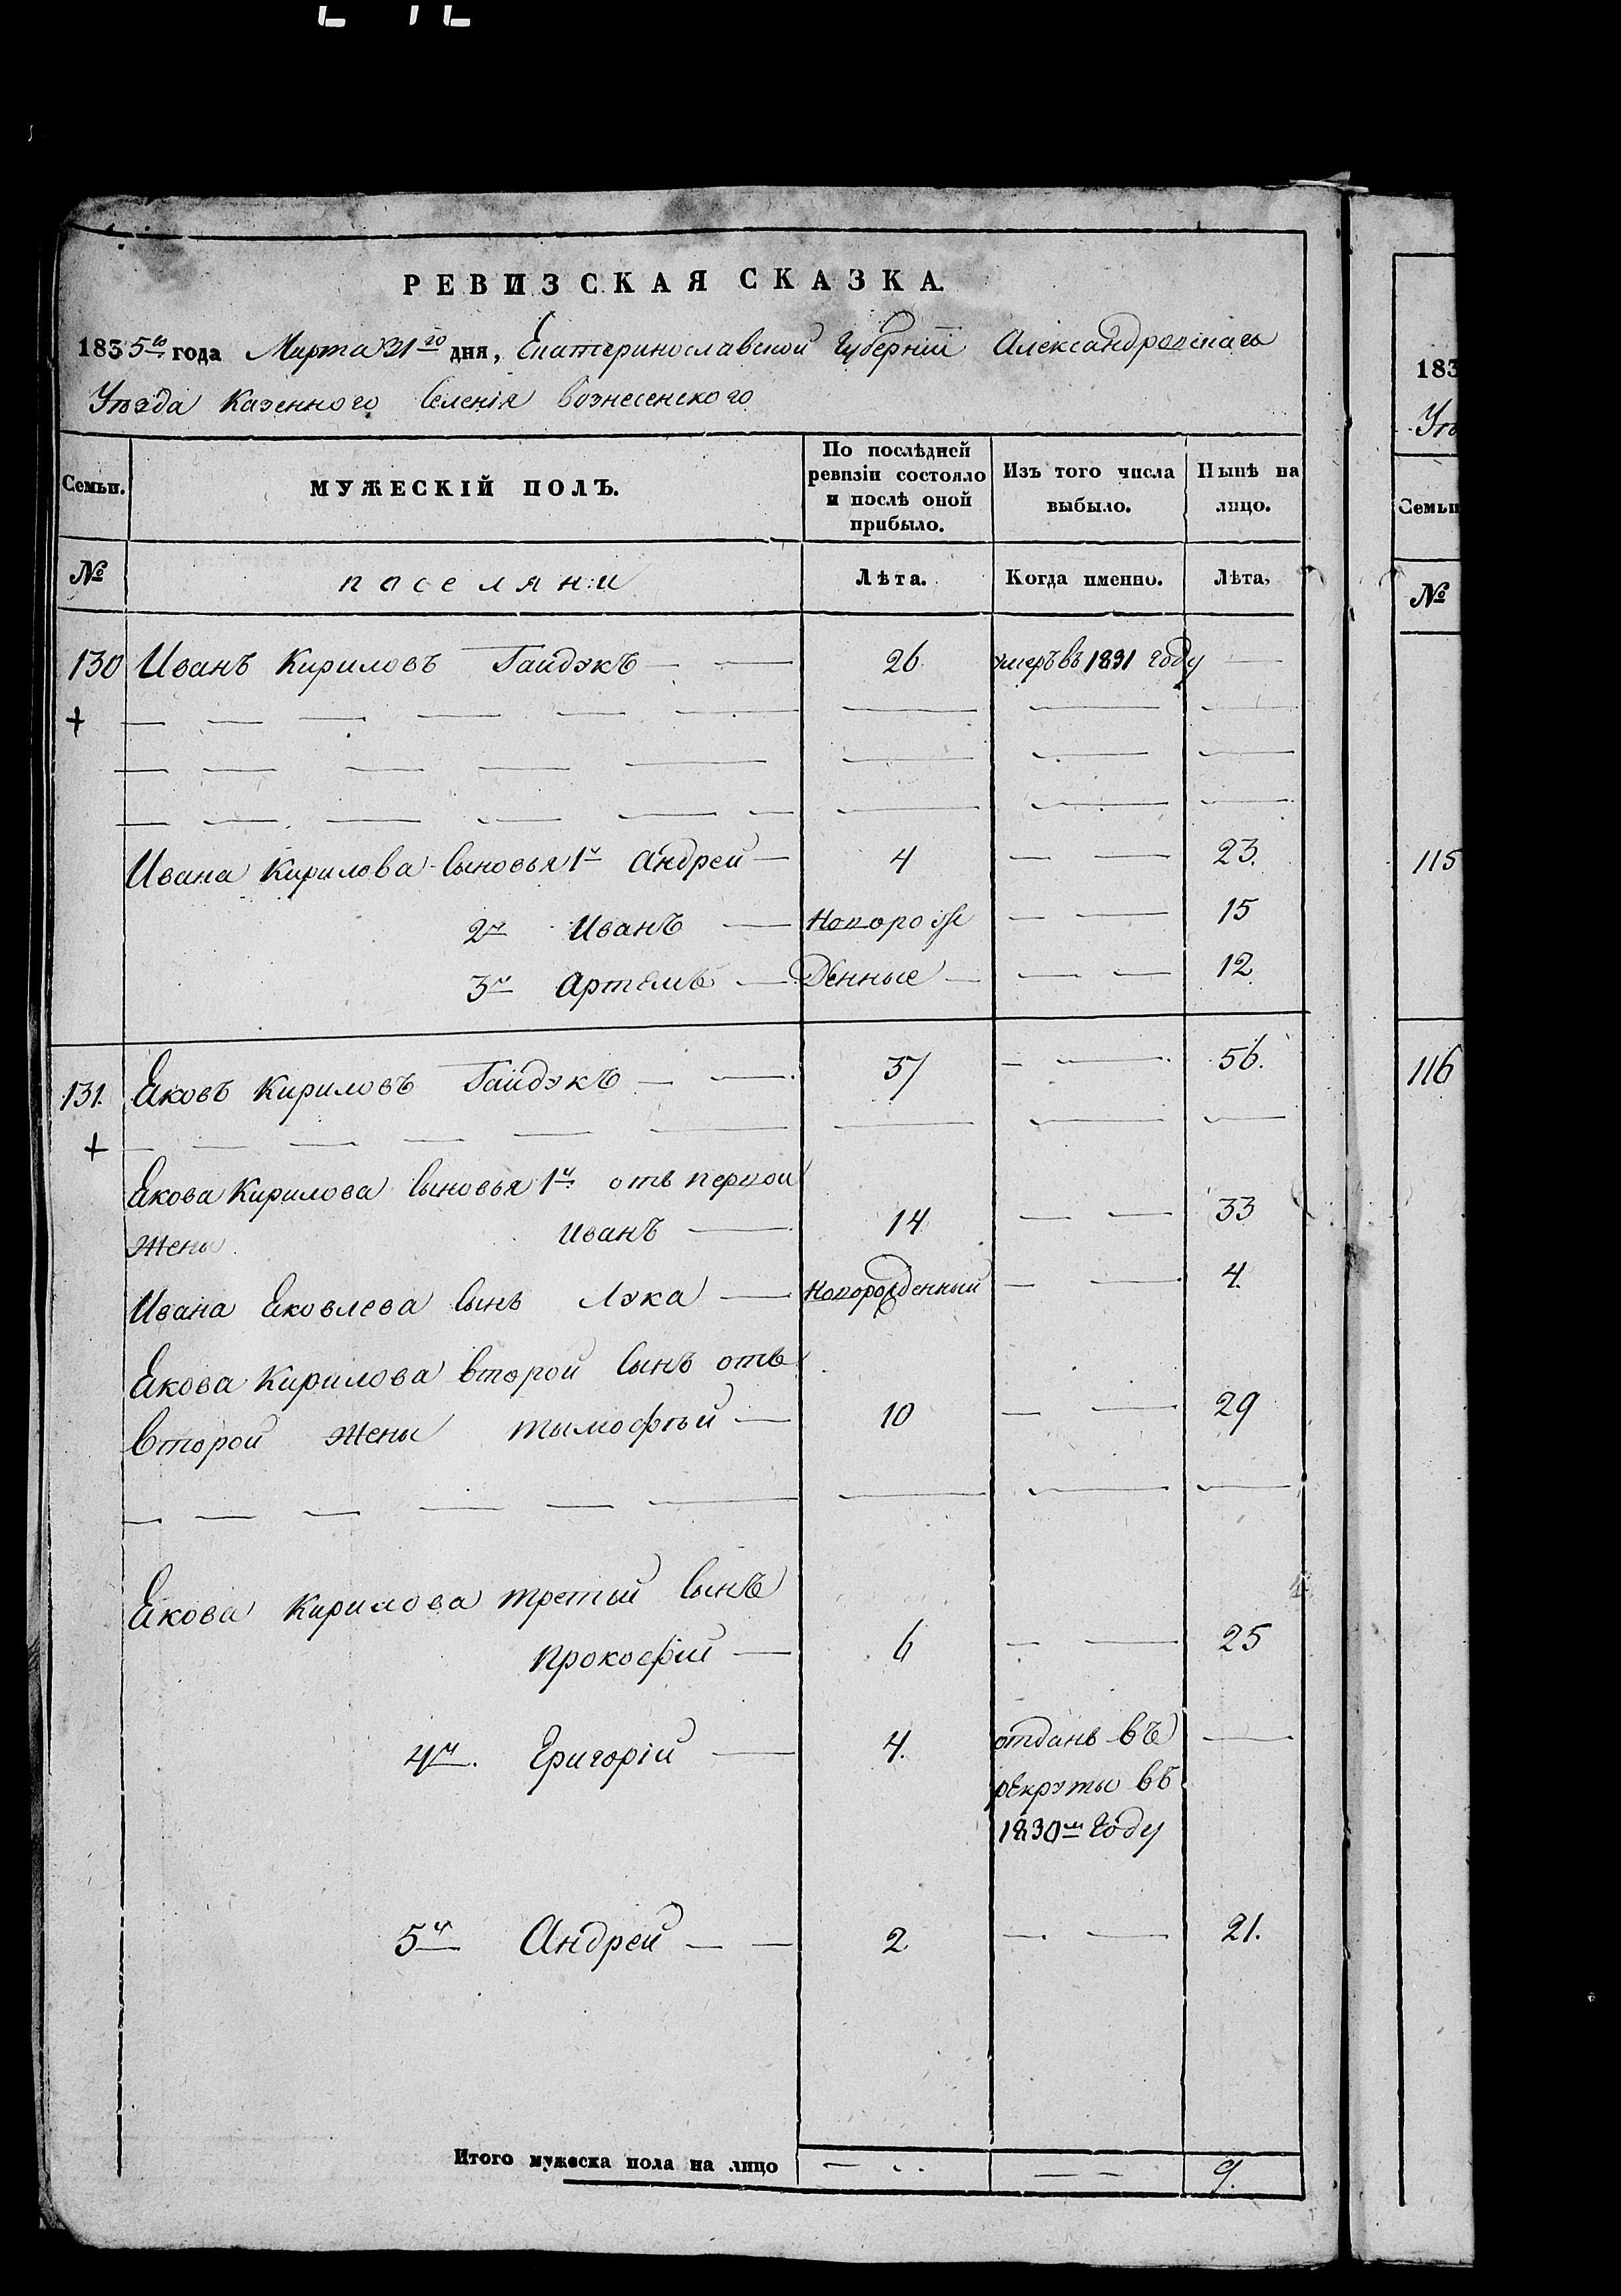 РЕВИЗСКАЯ СКАЗКА.
1835го года Марта 31го дня, Екатеринославской Губернии Александровскаго
Уѣзда Казенного Селенія Вознесенского
Семьи. МУЖЕСКІЙ ПОЛЪ. По послѣдней ревизіи состояло и послѣ оной прибыло. Изъ того числа выбыло. Нынѣ на лицо.
№ поселяни Лѣта. Когда именно. Лѣта,
130 Иванъ Кириловъ Гайдукъ — — 26 умеръ въ 1831 году —
+
Ивана Кирилова Сыновья 1й Андрей — 4 — — 23.
2й Иванъ — Новорож — — 15
3й Артемъ — Денные — — — 12
131. Яковъ Кириловъ Гайдукъ — — 37 — — 56.
+
Якова Кирилова Сыновья 1й отъ первой
жены Иванъ — 14 — — 33
Ивана Яковлева Сынъ Лука — Новорожденный — — 4.
Якова Кирилова второй Сынъ отъ
второй жены Тымофѣй — 10 — — 29
Якова Кирилова третий Сынъ
Прокофій — 6 — — 25
4й. Григорій — 4. отданъ въ —
рекруты въ
1830м Году
5й Андрей — — 2 — — 21.
Итого мужеска пола на лицо — — — 9.
183
Уѣ
Семьи
№
115
116